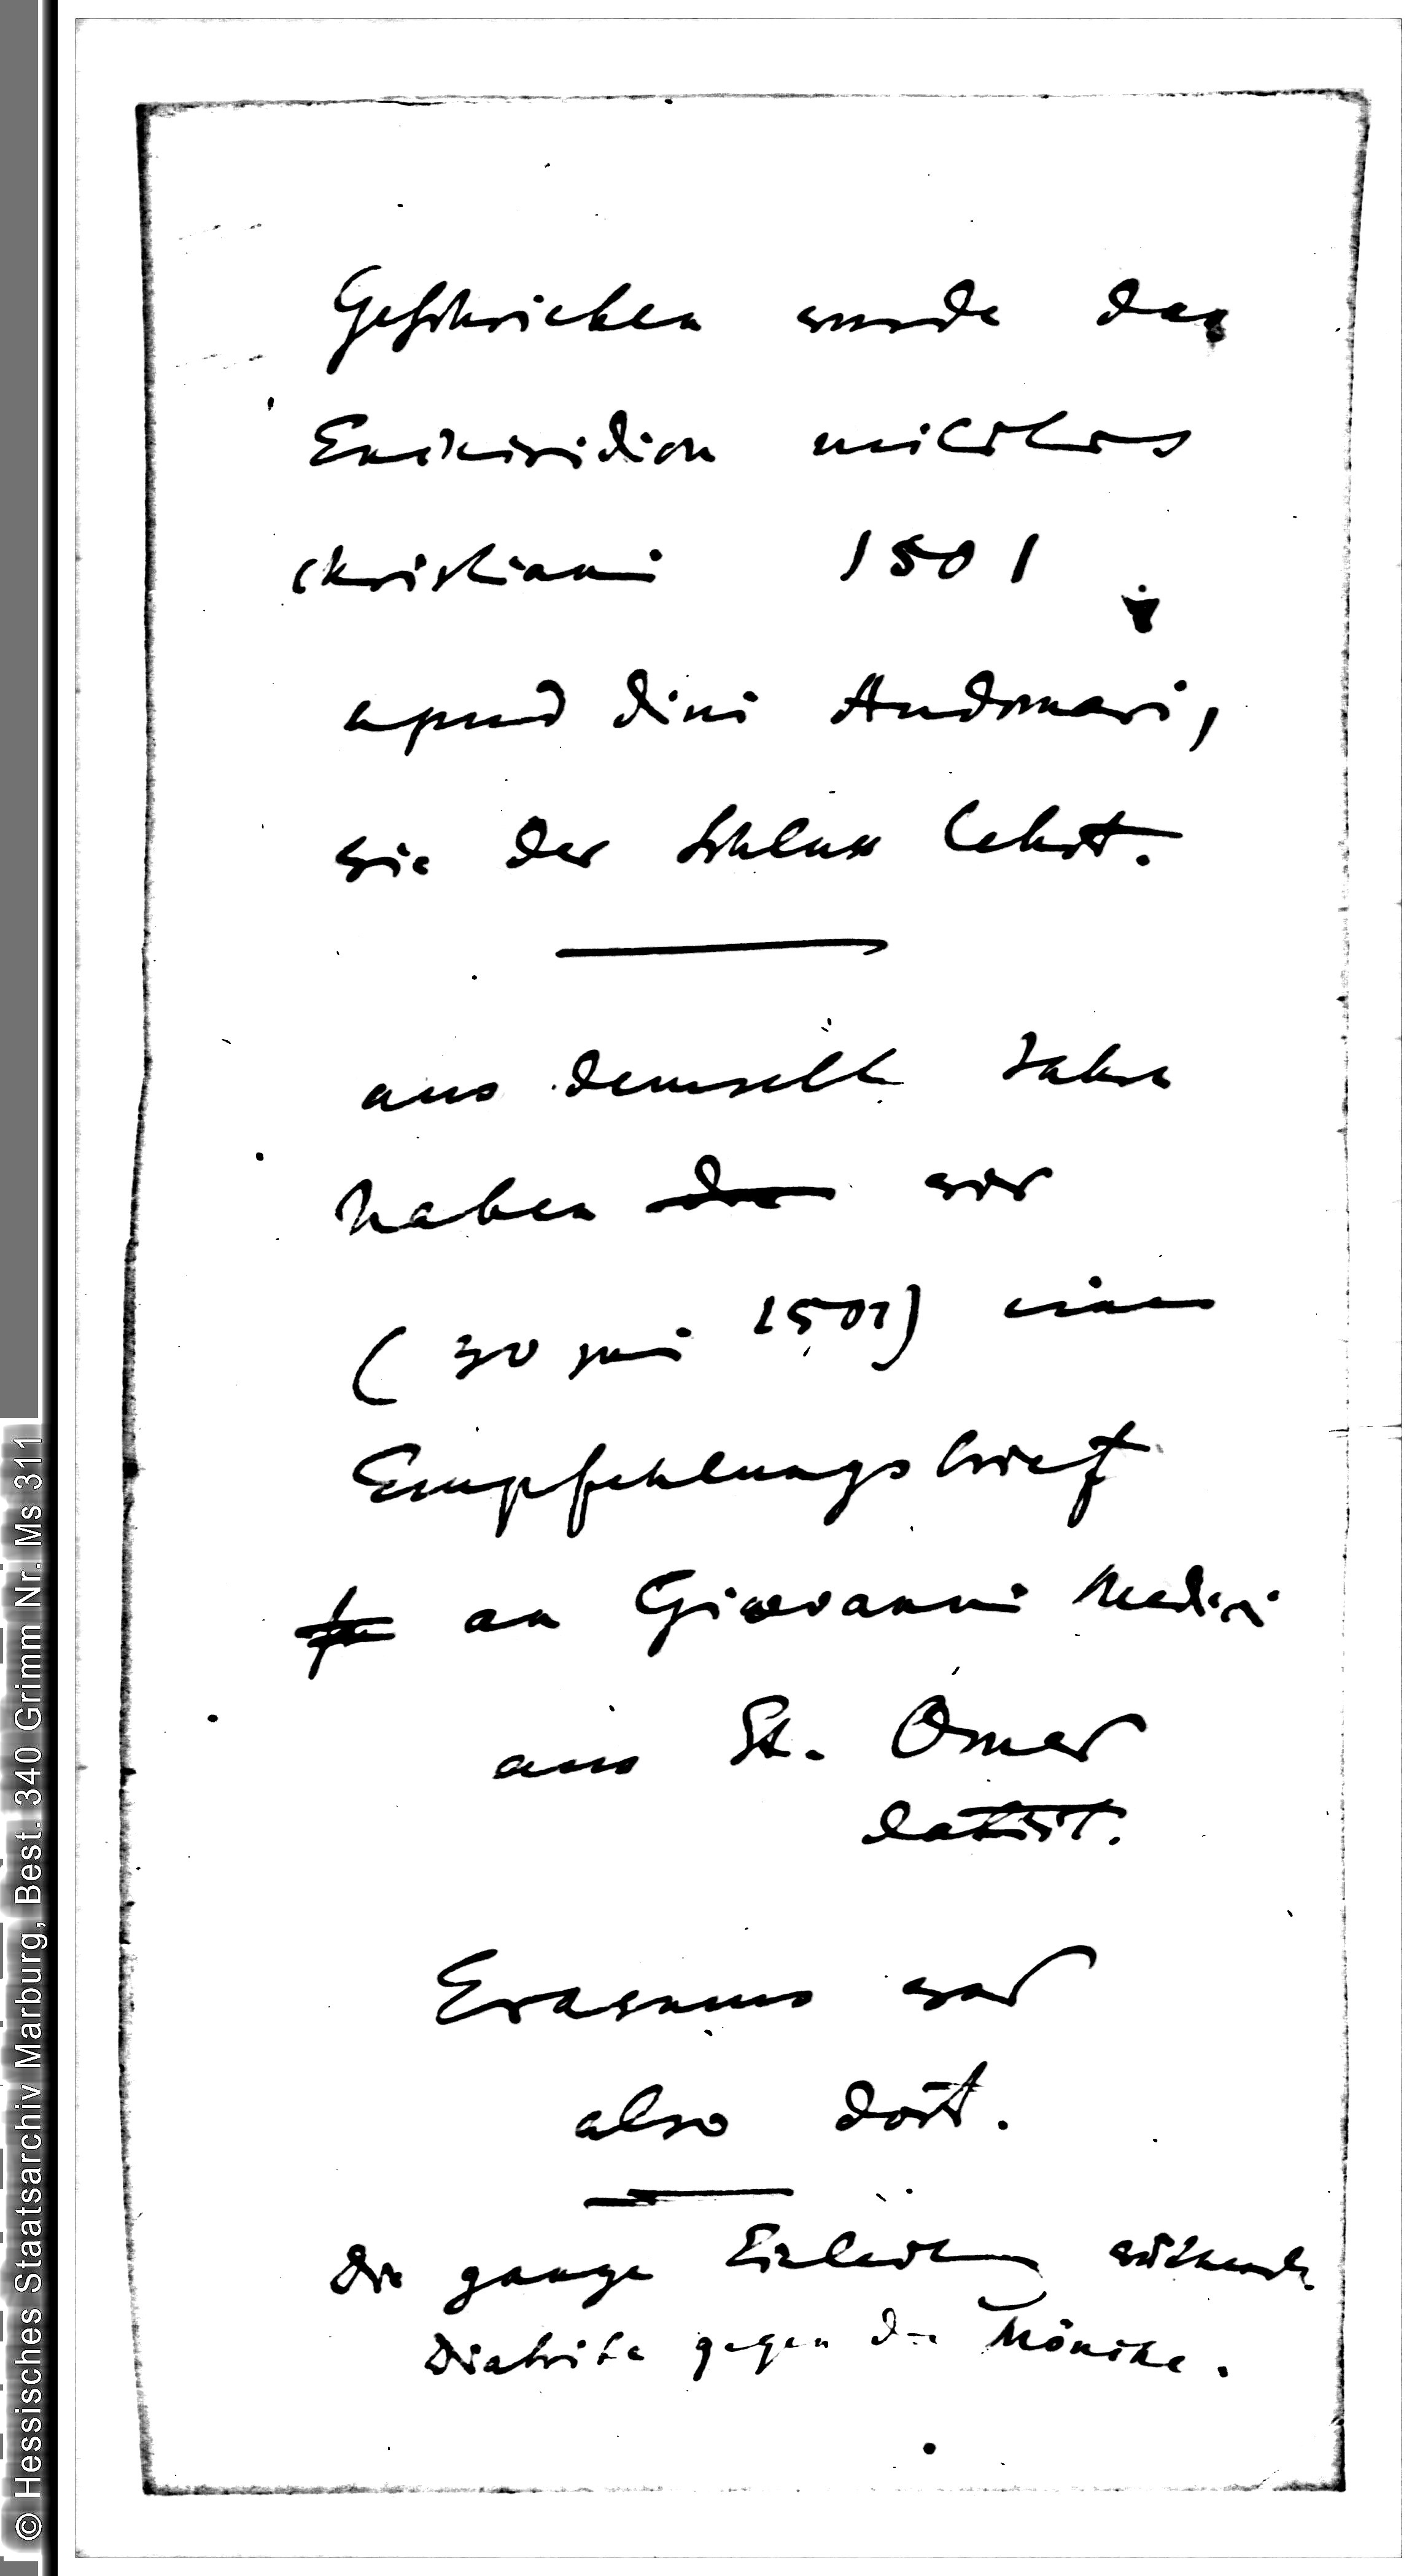 Geschrieben wurde das
Enchiridion militis
christiani 1501
apud divi Audomari,
wie der Schluss lehrt.
aus demselb Jahre
haben wir
(30 1501) einen
Empfehlungsbrief
an Giovanni Medici
aus St. Omer
datirt.
Erasmus war
also dort.
Die ganze Einleitung wüthende
Diatribe gegen die Mönche.
© Hessisches Staatsarchiv Marburg, Best. 340 Grimm Nr. Ms 311